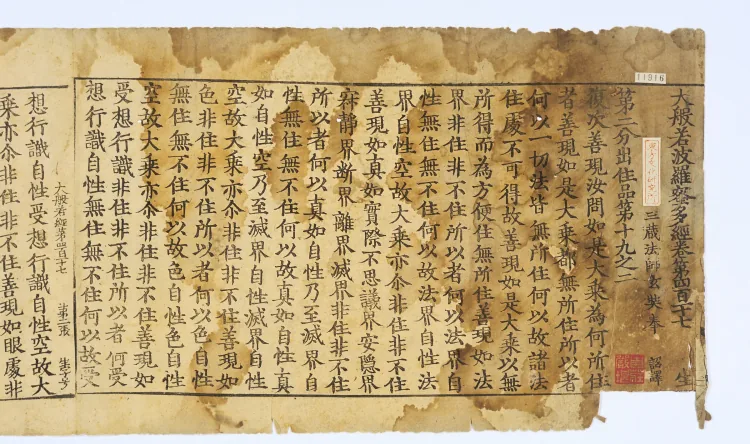 大般若波羅蜜多經卷第四百十七 生
三藏法師玄奘奉 詔譯
第二分出住品第十九之二
復次善現汝問如是大乘為何所住
者善現如是大乘都無所住所以者
何以一切法皆無所住何以故諸法
住處不可得故善現如是大乘以無
所得而為方便住無所住善現如法
界非住非不住所以者何以法界自
性無住無不住何以故法界自性法
界自性空故大乘亦尒非住非不住
善現如真如實際不思議界安隱界
寂靜界斷界離界滅界非住非不住
所以者何以真如自性乃至滅界自
性無住無不住何以故真如自性真
如自性空乃至滅界自性滅界自性
空故大乘亦尒非住非不住善現如
色非住非不住所以者何以色自性
無住無不住何以故色自性色自性
空故大乘亦尒非住非不住善現如
受想行識非住非不住所以者何受
想行識自性無住無不住何以故受
大般若經第四百十七 第二張 生字号
想行識自性受想行識自性空故大
乘亦尒非住非不住善現如眼處非
11916